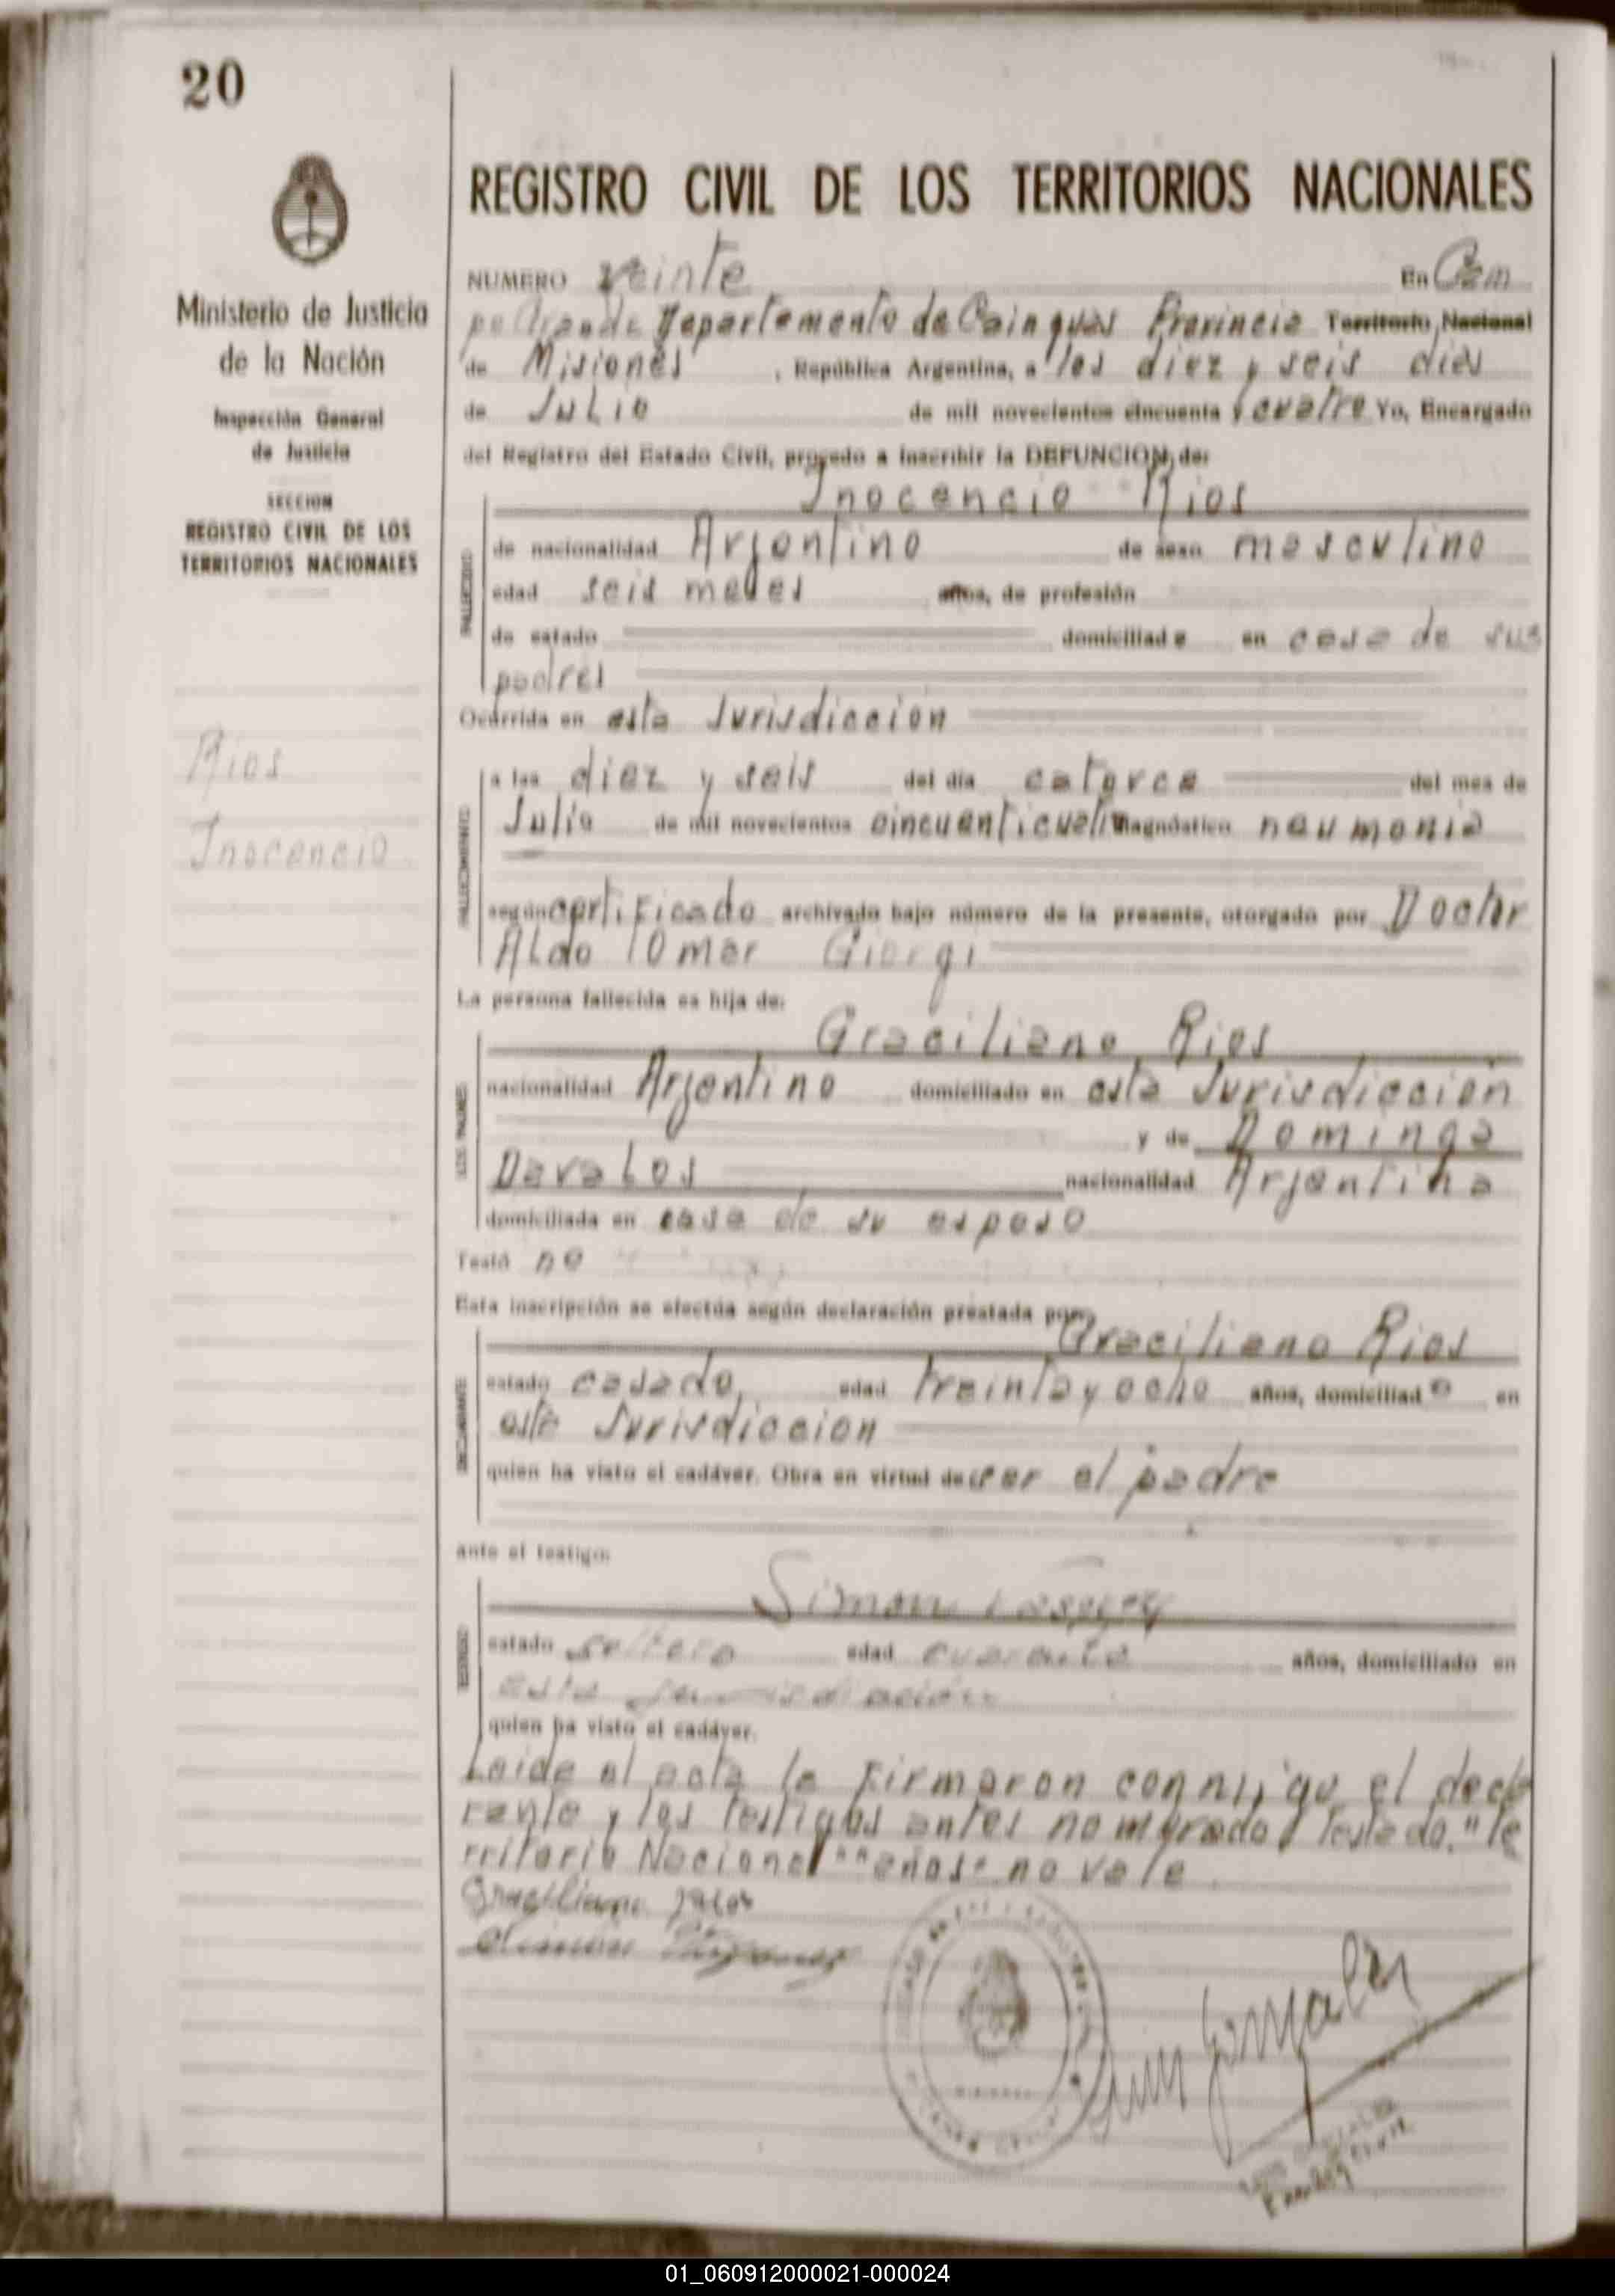 20
REGISTRO CIVIL DE LOS TERRITORIOS NACIONALES
Ministerio de Justicia
de la Nación
Inspección General
de Justicia
SECCION
REGISTRO CIVIL DE LOS
TERRITORIOS NACIONALES
Rios
Inocencio
NUMERO veinte En Cam
po Grande Departamento de Cainguas Provincia Territorio Nacional
de Misiones, República Argentina, a los diez y seis dias
de Julio de mil novecientos cincuenta y cuatro Yo, Encargado
del Registro del Estado Civil, procedo a inscribir la DEFUNCION de:
Inocencio Rios
FALLECIDO
de nacionalidad Arjentino de sexo masculino
edad seis meses años, de profesión
de estado domiciliado en casa de sus
padres
Ocurrida en esta Jurisdiccion
FALLECIMIENTO
a las diez y seis del día catorce del mes de
Julio de mil novecientos cincuenticuatro diagnóstico neumonia
según certificado archivado bajo número de la presente, otorgado por Doctor
Aldo Omar Giorgi
La persona fallecida es hija de:
Graciliano Rios
LOS PADRES
nacionalidad Arjentino domiciliado en esta Jurisdiccion
y de Dominga
Davalos nacionalidad Arjentina
domiciliada en casa de su esposo
Testó no
Esta inscripción se efectúa según declaración prestada por:
Graciliano Rios
estado casado, edad treinta y ocho años, domiciliado en
esta Jurisdiccion
quien ha visto el cadáver. Obra en virtud de ser el padre
ante el testigo:
Simon
TESTIGO
estado soltero edad cuarenta años, domiciliado en
esta jurisdicción
quien ha visto el cadáver.
Leida el acta la Firmaron conmigo el decla
rante y los testigos antes nombrados testado. "Te
rritorio Nacional" "años" no vale.
Graciliano Rios
Simon
Luis Gonzalez
LUIS GONZALEZ
Encargado
01_060912000021-000024